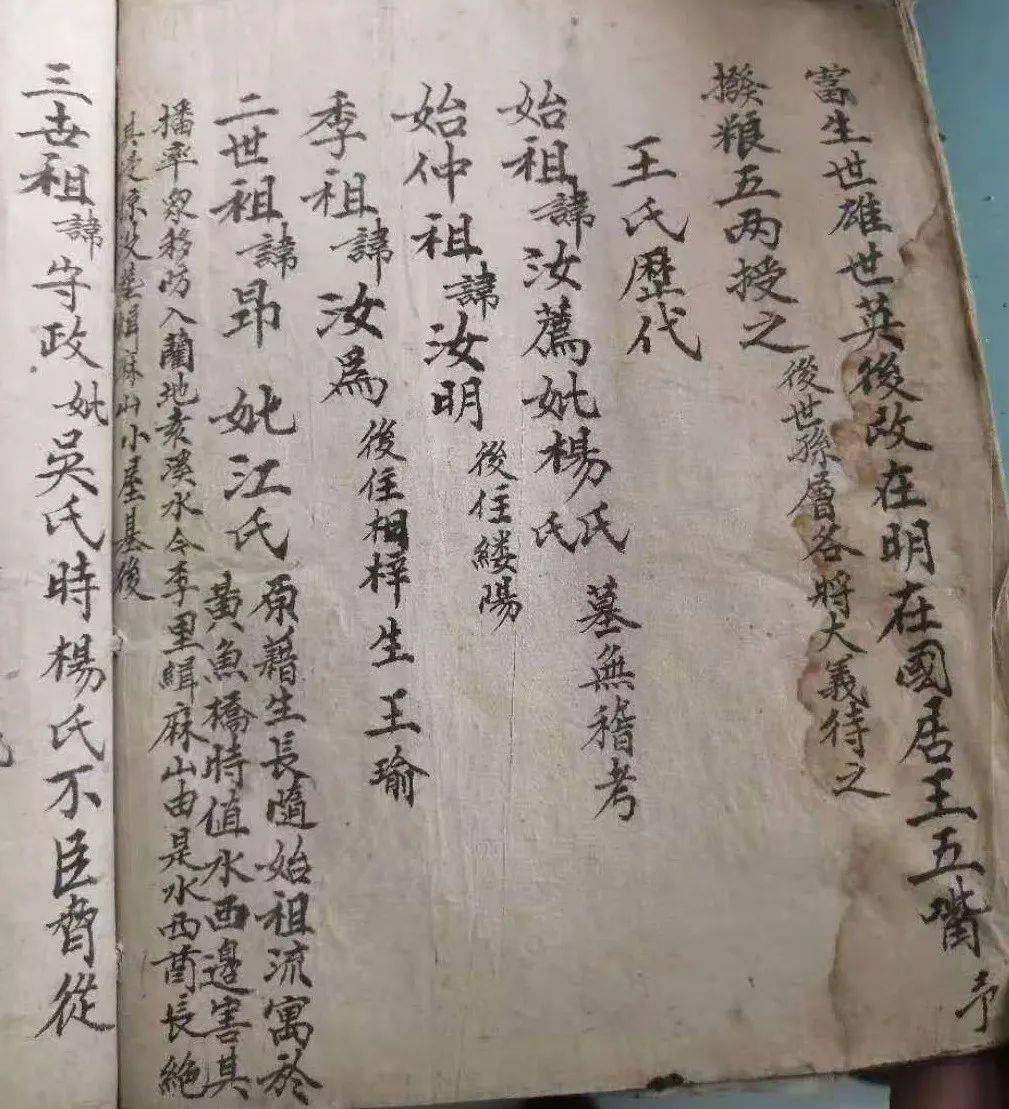 富生世雄世英後改在明在國居王五嘴予
撥粮五两授之後世孫層各將大義待之
王氏歷代
始祖諱汝薦妣楊氏氏墓無稽考
始仲祖諱汝明後住緌陽
季祖諱汝爲後住桐梓生王瑜
二世祖諱昴妣江氏原籍生長隨始祖流寓於
黃魚橋時值水西邊害其
播率众移防入藺地赤溪水令李里緝麻山由是水西酋長絶
其侵掠文墓緝麻山小屋基後
三世祖諱守政妣吳氏時楊氏不臣脅從